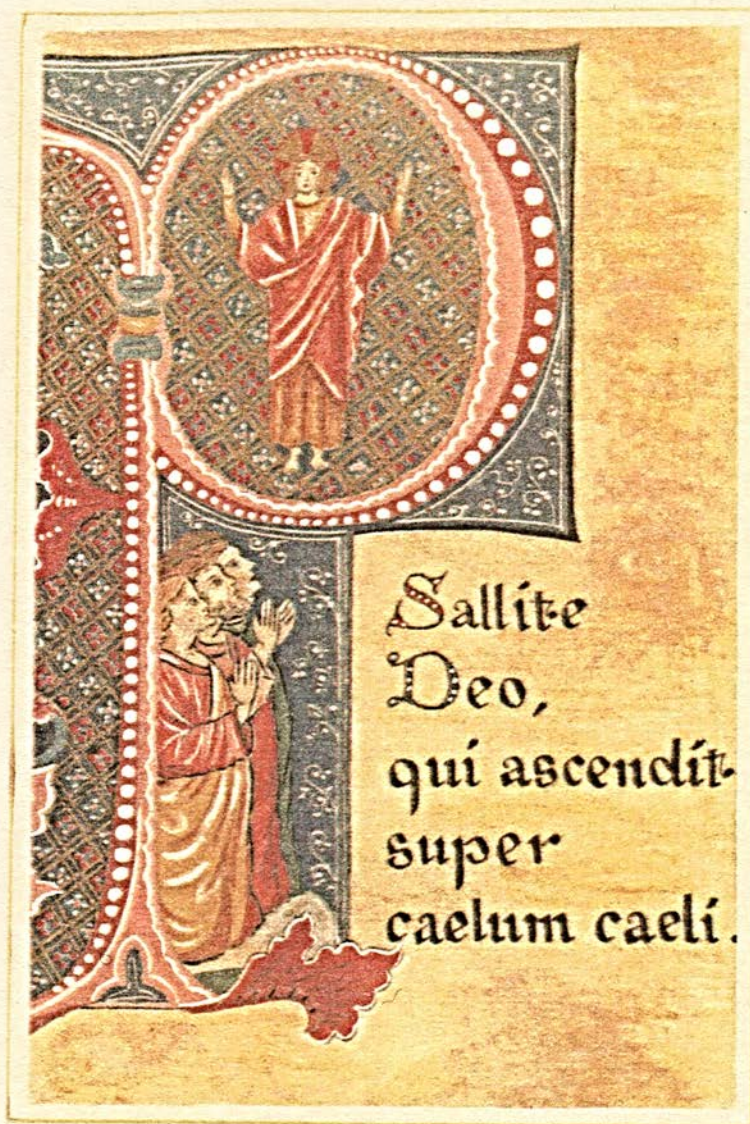 PSallite
Deo,
qui ascendit
super
caelum caeli.